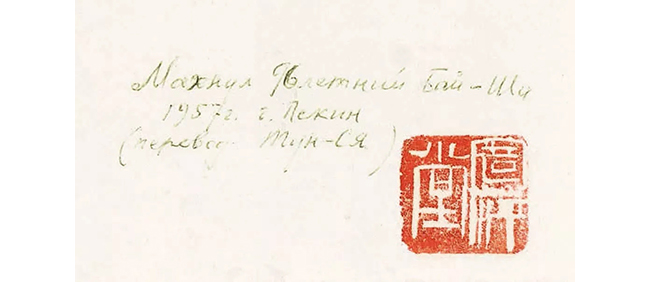 Махнул 96летний Бай-Ши
1957г. г. Пекин
(перевод Тун-Ся)